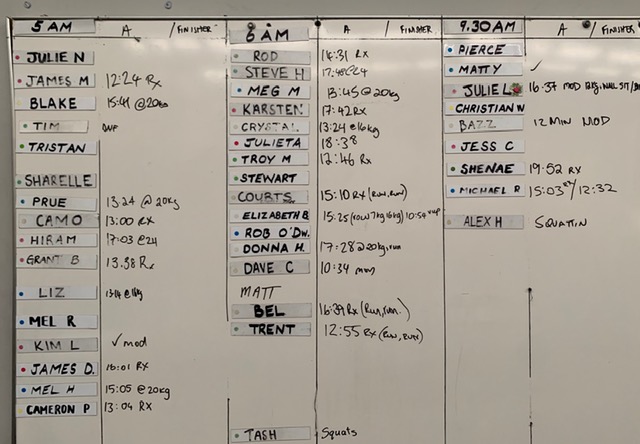 5 AM A /FINISHER
JULIE N
JAMES M 12:24 RX
BLAKE 15:41 @20KG
TIM DNF
TRISTAN
SHARELLE
PRUE 13.24 @ 20KG
CAMO 13:00 RX
HIRAM 17:03 @24
GRANT B 13.38 Rx
LIZ
MEL R
KIM L ✓ mod
JAMES D. 16:01 RX
MEL H 15:05 @20kg
CAMERON P 13:04 RX
6 AM A /FINISHER
ROD 14:31 Rx
STEVE H
MEG M 13:45 @20kg
KARSTEN 17:42 RX
CRYSTAL 13:24 @16kg
JULIETA 18:38
TROY M 12:46 Rx
STEWART
COURTS. 15:10 Rx (Run, run)
ELIZABETH B. 15:25
ROB O'DW.
DONNA H. 17:28 @20kg, run
DAVE C 10:34
MATT
BEL 16:39 Rx (Run, run.)
TRENT 12:55 Rx (Run, run)
TASH Squats
9.30AM A /FINISHER
PIERCE
MATTY ✓
JULIE L 16:37 MOD
CHRISTIAN N
BAZZ 12 MIN MOD
JESS C
SHENAE 19:52 RX
MICHAEL R 15:03 RX / 12:32
ALEX H SQUATTIN